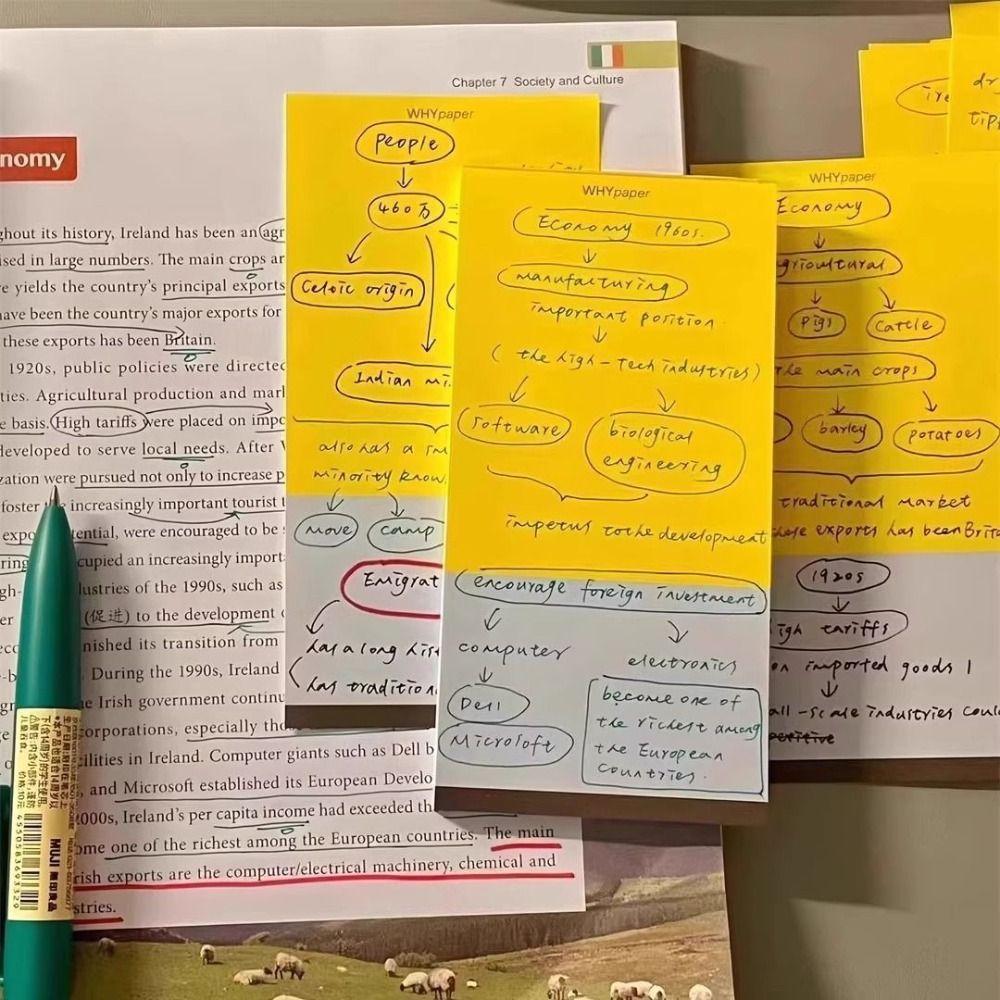 Chapter 7 Society and Culture
nomy
ghout its history, Ireland has been an agr
ised in large numbers. The main crops ar
e yields the country's principal exports
have been the country's major exports for
these exports has been Britain.
1920s, public policies were directed
ties. Agricultural production and mark
e basis. High tariffs were placed on impo
developed to serve local needs. After
zation were pursued not only to increase p
foster increasingly important tourist
were encouraged to be
ring cupied an increasingly import
gh- lustries of the 1990s, such as
(促进) to the development
nished its transition from
During the 1990s, Ireland
e Irish government continu
orporations, especially tho
ilities in Ireland. Computer giants such as Dell
and Microsoft established its European Develo
2000s, Ireland's per capita income had exceeded th
ome one of the richest among the European countries. The main
rish exports are the computer/electrical machinery, chemical and
stries.
MUJI 無印良品
4550583693320
WHYpaper
People
460万
Celtic origin
Indian mi
also has a sm
minority know
move
camp
Emigrat
has a long hist
has tradition
WHYpaper
Economy 1960s.
manufacturing
important position.
( the high-tech industries)
software
biological
engineering
impetus to the development
encourage foreign investment
computer
electronics
Dell
Microsoft
become one of
the richest among
the European
countries.
WHYpaper
Economy
gricultural
Pigs
Cattle
the main crops
barley
potatoes
traditional market
these exports has been Brita
1920s
igh tariffs
on imported goods
all-scale industries could
ire
dr
tip